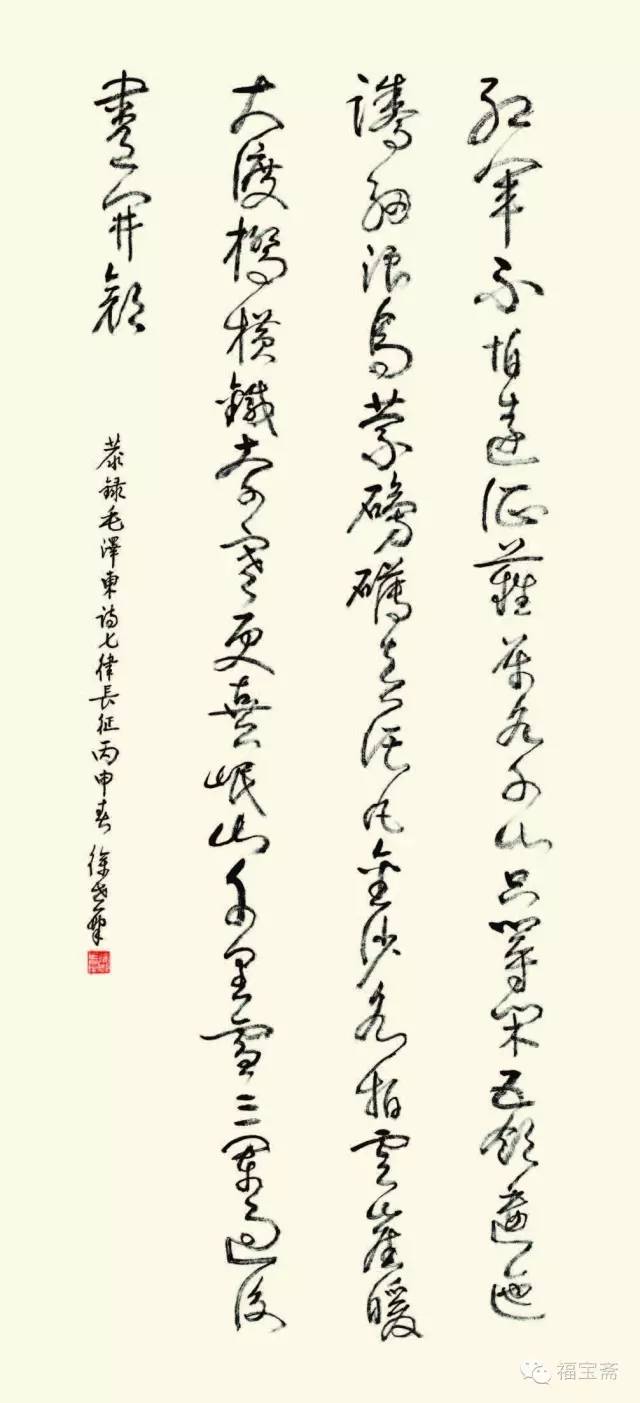 紅軍不怕遠征難萬水千山只等閑五嶺逶迤
騰細浪烏蒙磅礴走泥丸金沙水拍雲崖暖
大渡橋橫鐵索寒更喜岷山千里雪三軍過後
盡開顏
恭録毛澤東詩七律長征丙申春 徐
福宝斋